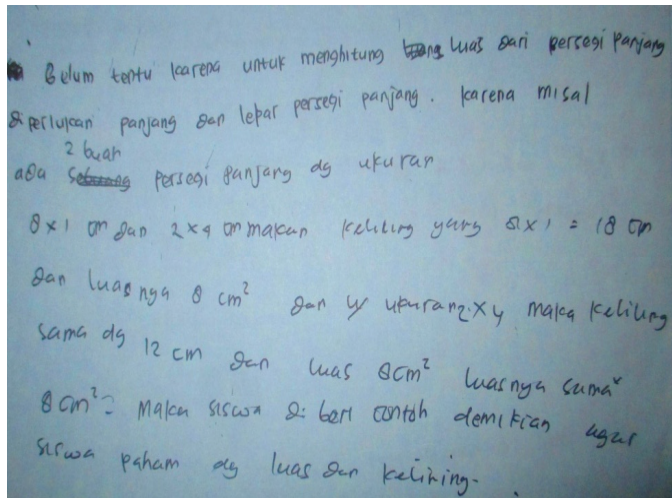 Belum tentu karena untuk menghitung luas dari persegi panjang
diperlukan panjang dan lebar persegi panjang. karena misal
2 buah
ada persegi panjang dg ukuran
8x1 cm dan 2x4 cm makan keliling yang 8x1 = 18 cm
dan luasnya 8 cm² dan u/ ukuran 2x4 maka keliling
sama dg 12 cm dan luas 8cm² luasnya sama²
8 cm² = maka siswa di beri contoh demikian agar
siswa paham dg luas dan keliling.